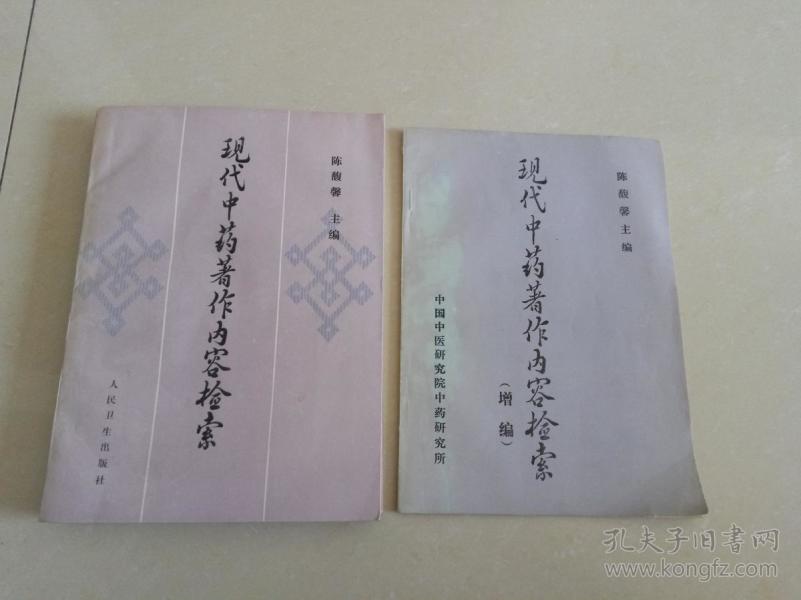 现代中药著作内容检索
陈馥馨 主编
人民卫生出版社
现代中药著作内容检索
（增编）
陈馥馨主编
中国中医研究院中药研究所
孔夫子旧书网
www.kongfz.com